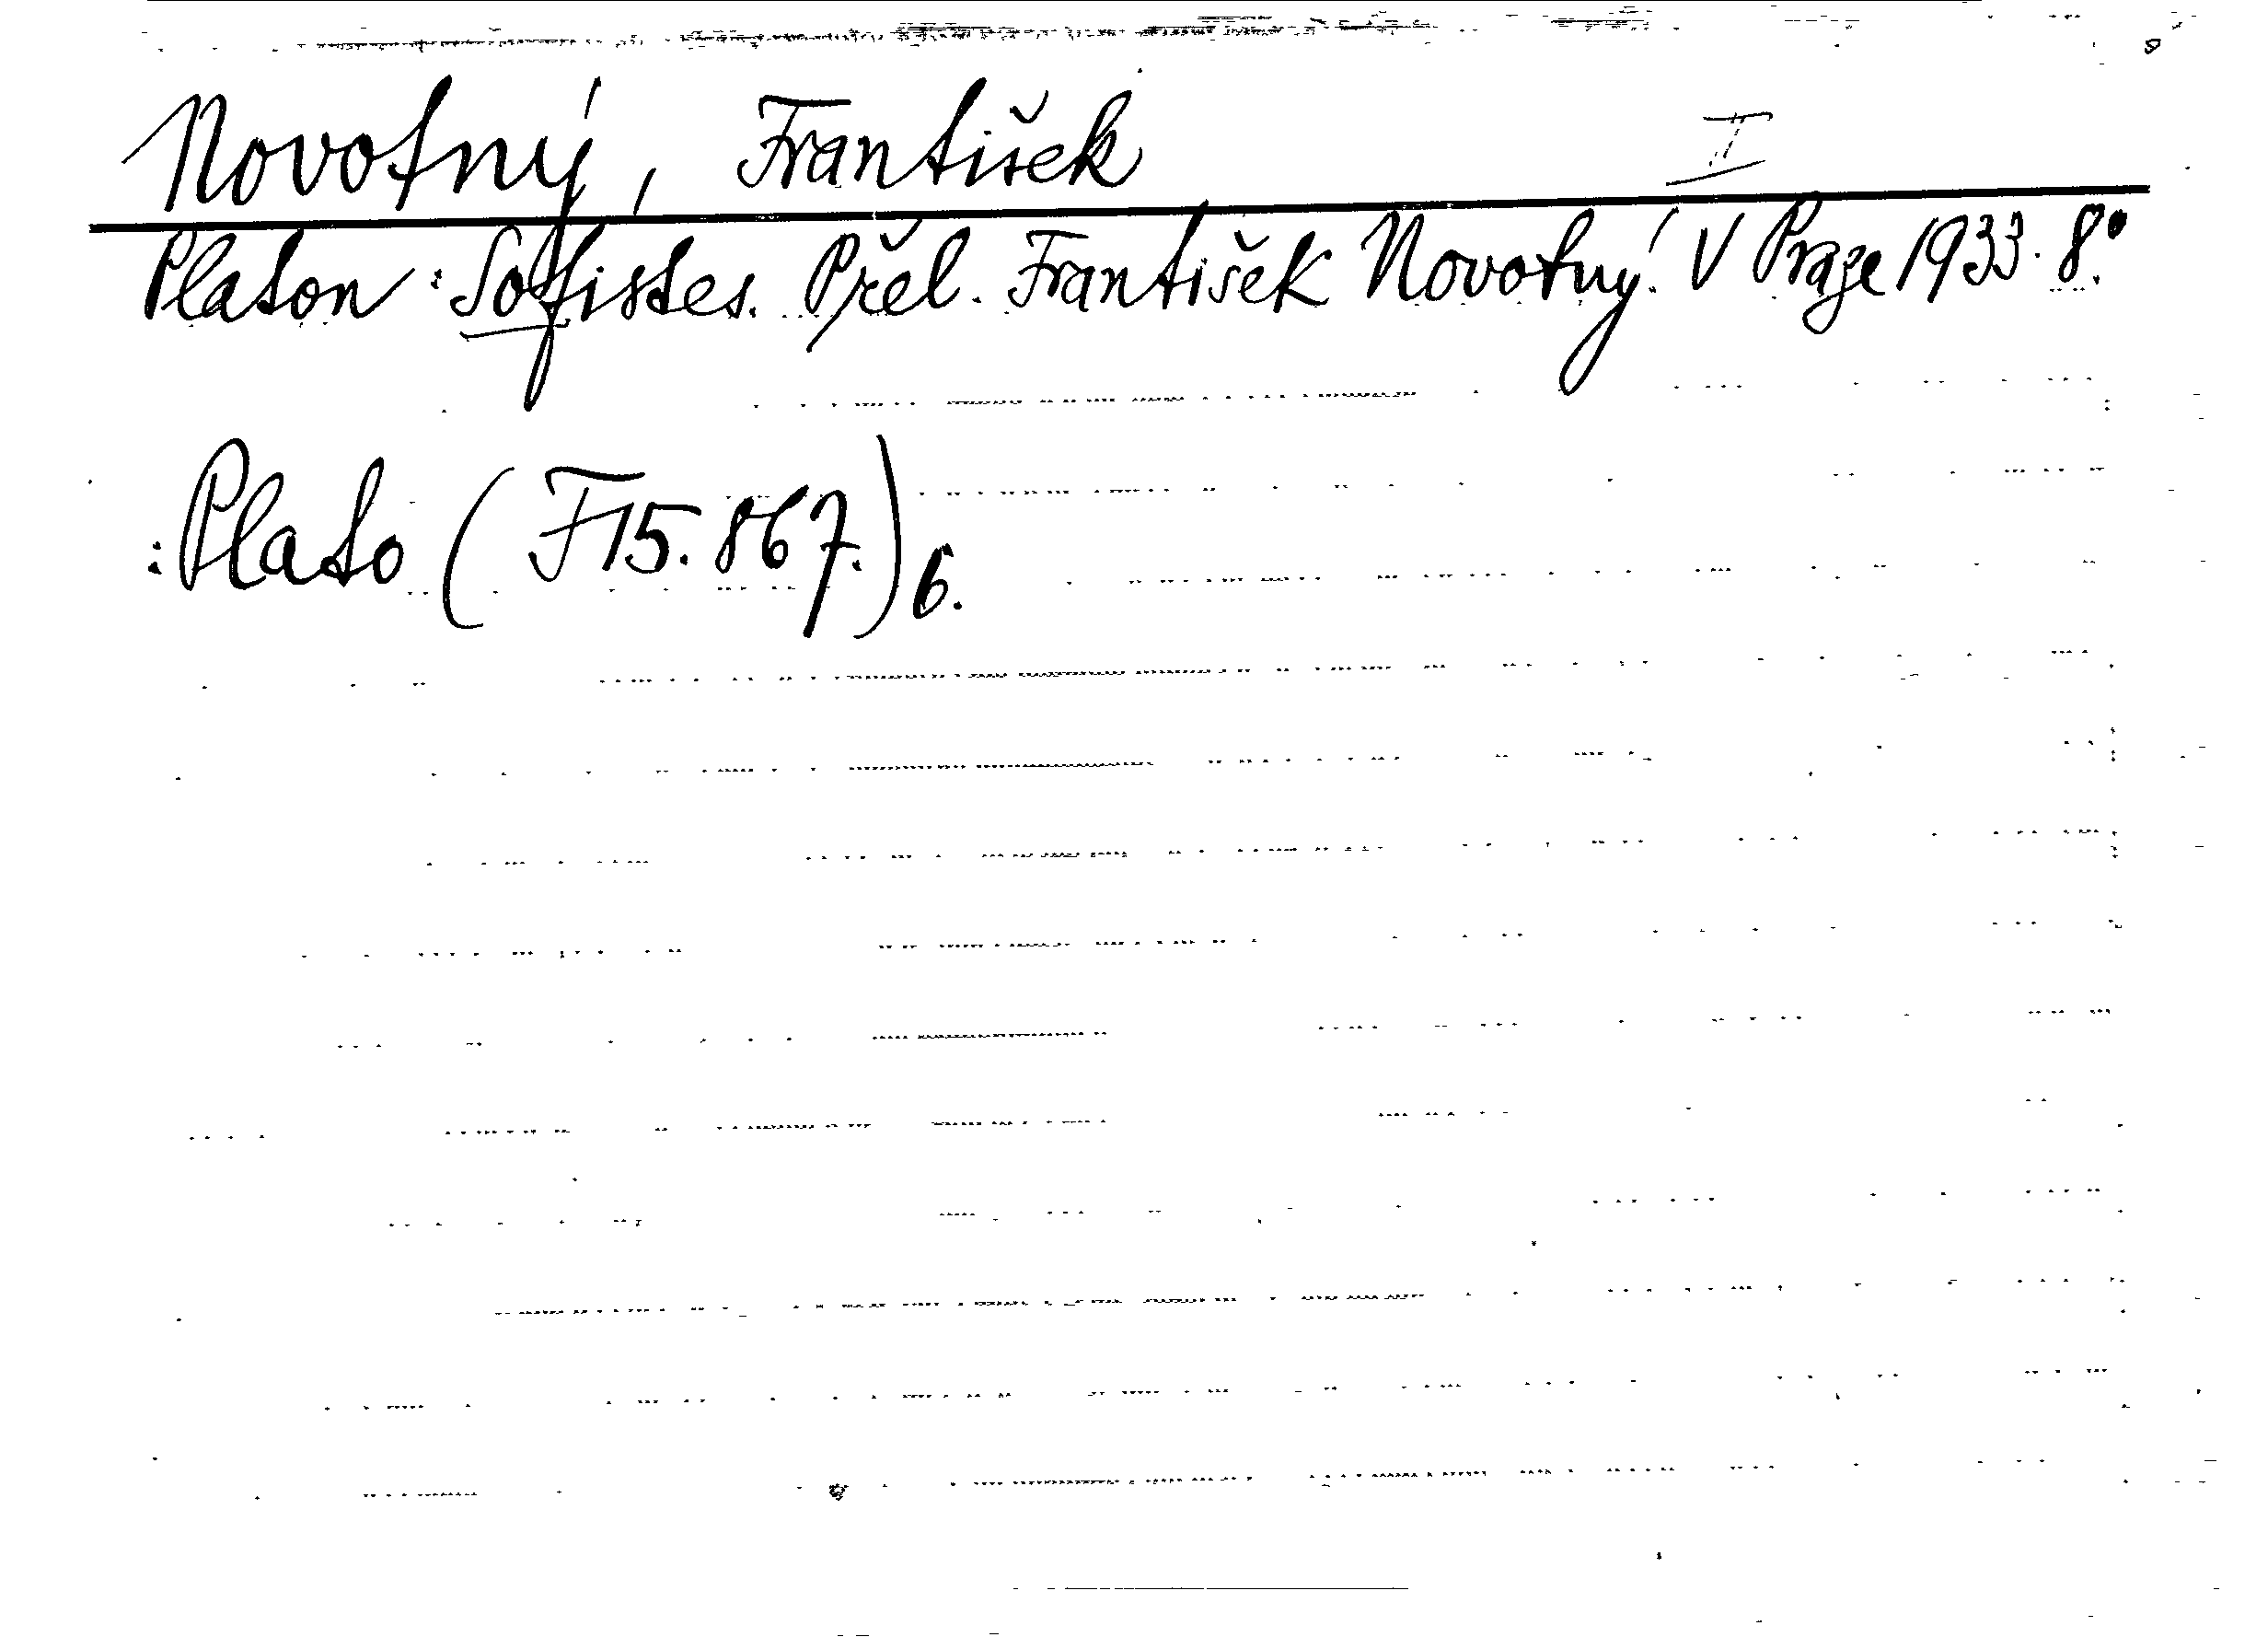 Novotný, František I
Platon: Sofistes. Přel. František Novotný. V Praze 1933. 8°.
:Plato (F 15.867.)6.